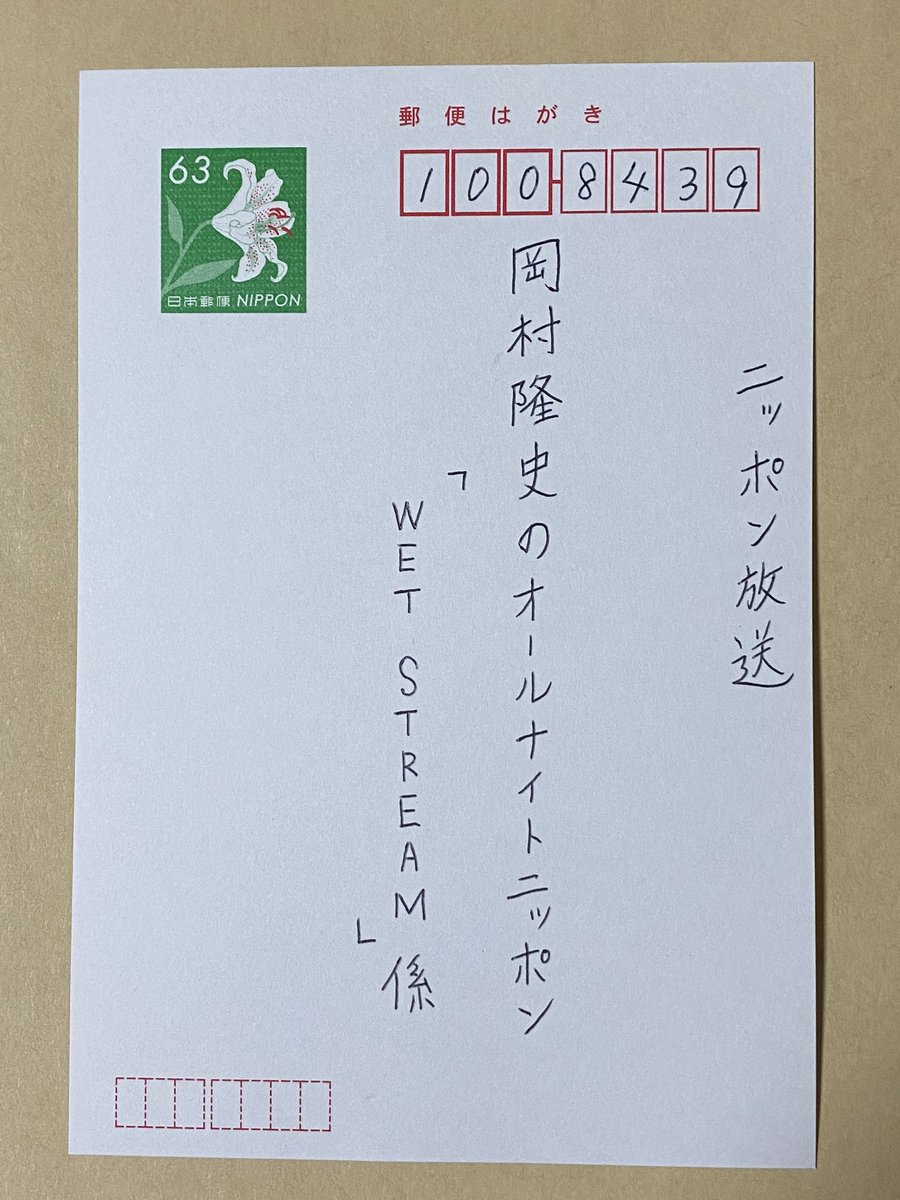 郵便はがき
63
日本郵便 NIPPON
100-8439
ニッポン放送
岡村隆史のオールナイトニッポン
「WET STREAM」係